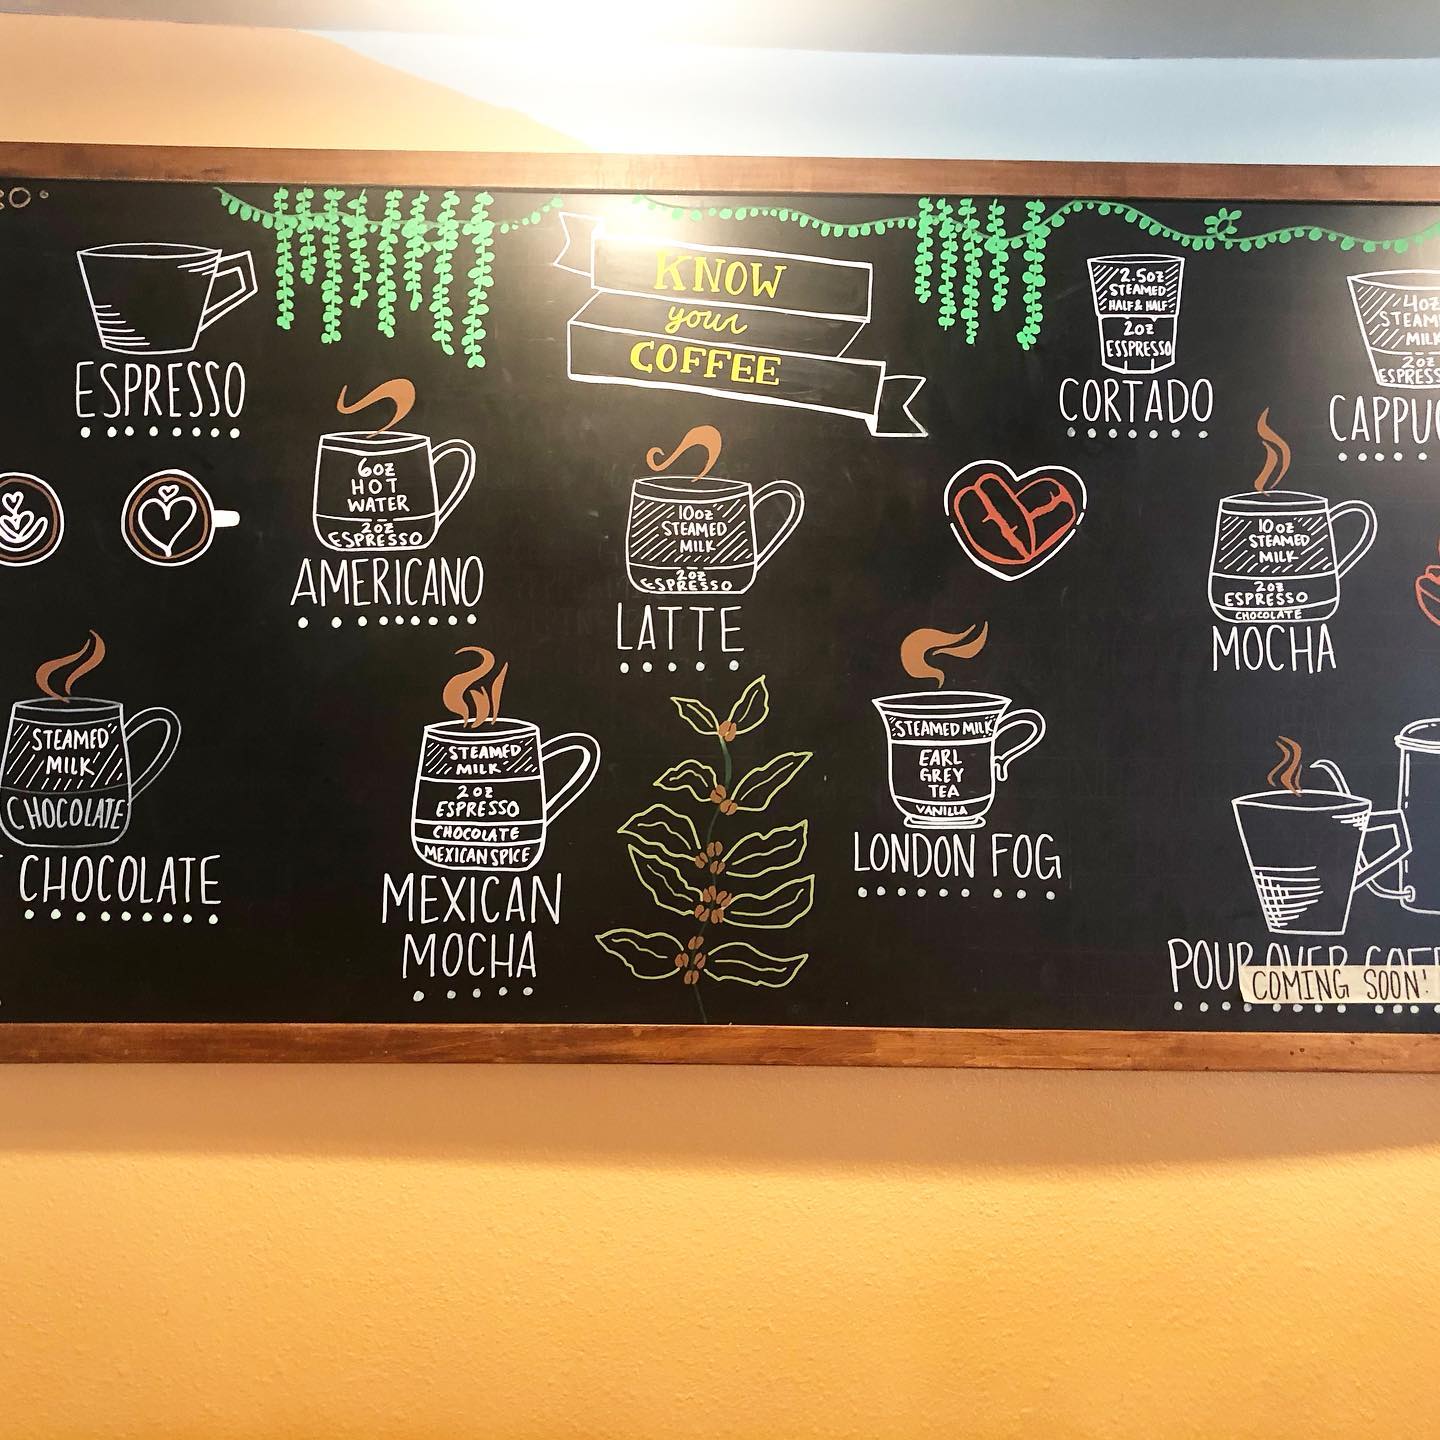 KNOW
your
COFFEE
ESPRESSO
6oz
HOT
WATER
2oz
ESPRESSO
AMERICANO
10oz
STEAMED
MILK
2oz
ESPRESSO
LATTE
2.5oz
STEAMED
HALF & HALF
2oz
ESSPRESSO
CORTADO
4oz
2oz
10oz
STEAMED
MILK
2oz
ESPRESSO
CHOCOLATE
MOCHA
STEAMED
MILK
CHOCOLATE
CHOCOLATE
STEAMED
MILK
2oz
ESPRESSO
CHOCOLATE
MEXICAN SPICE
MEXICAN
MOCHA
STEAMED MILK
EARL
GREY
TEA
VANILLA
LONDON FOG
POUR OVER
COMING SOON!